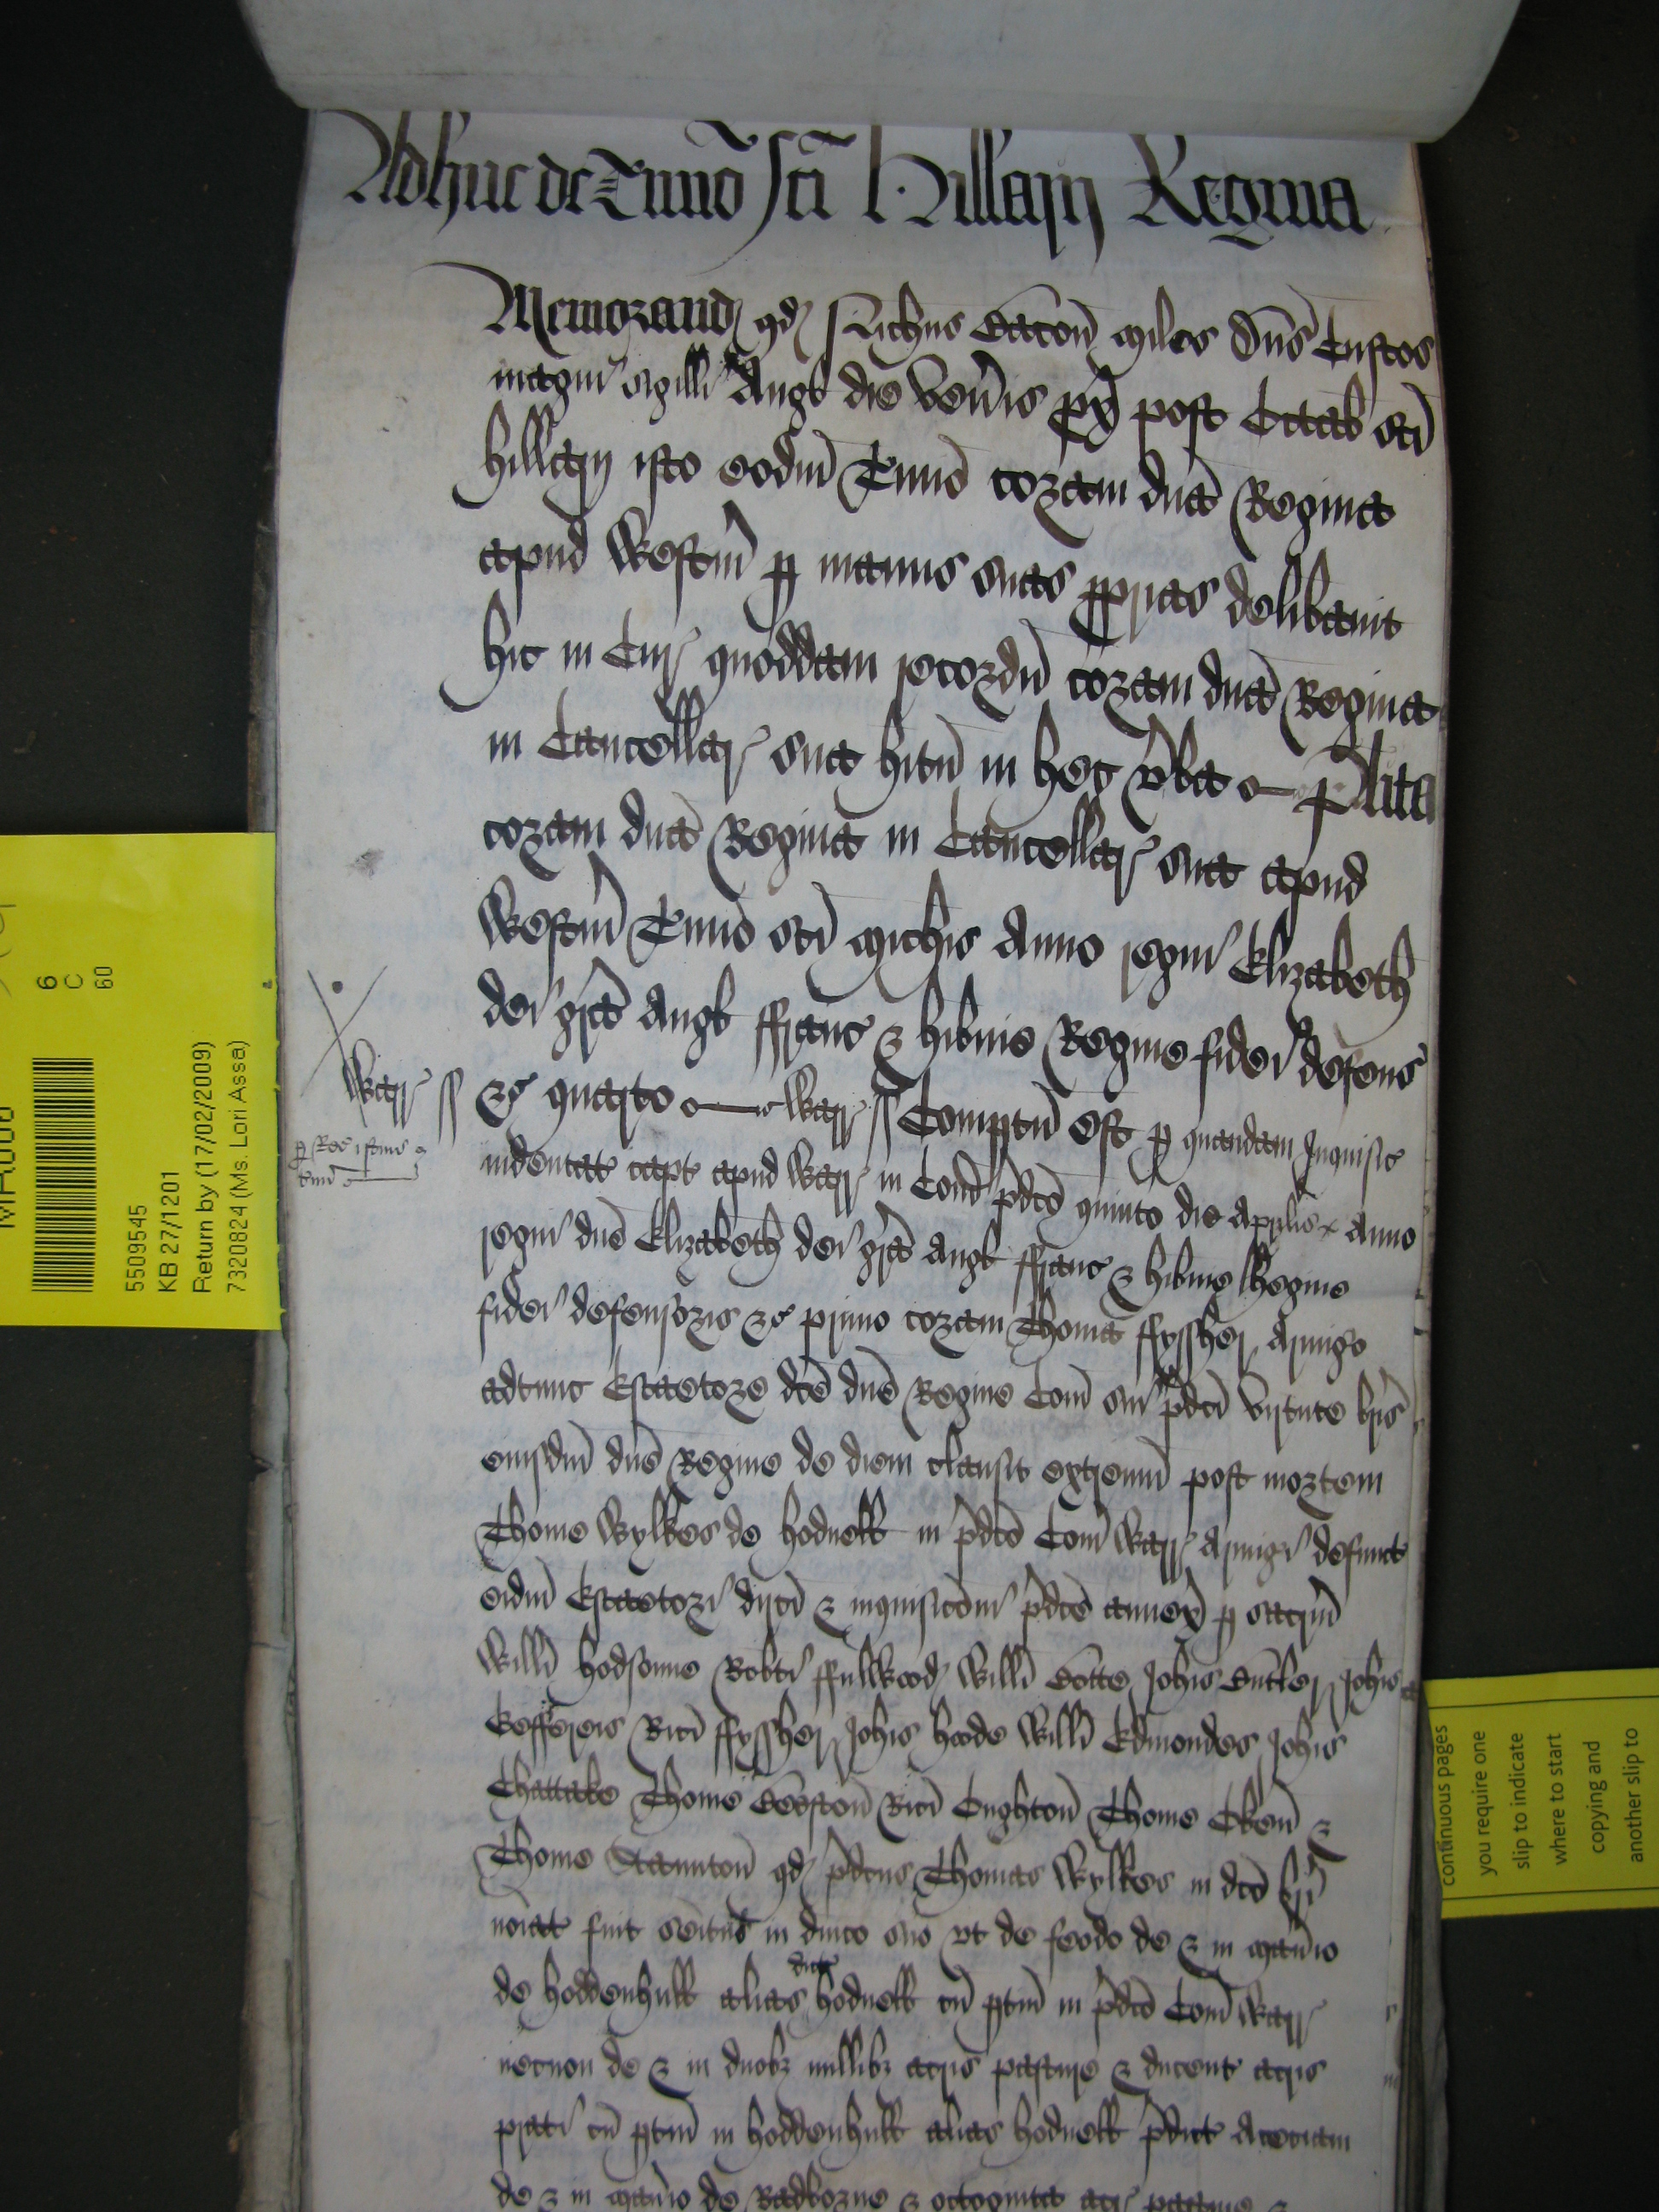 Adhuc de Tmino sci Hillarij Regina
Memorand qd Nichus Bacon miles Dns Custos
magni sigilli Angl die Veneris px post Octab sci
Hillarij isto eodm Tmino coram dna Regina
apud Westm p manus suas pprias delibavit
hic in Cur quoddam recordu coram dna Regina
in Cancellar sua hitu in hec vba Plita
coram dna Regina in Cancellar sua apud
Westm Tmino sci Michis Anno regni Elizabeth
dei gra Angl ffranc & hibnie Regine fidei defens
&c quarto Warr ss Comptu est p quandam Inquisic
indentat capt apud Warr in Com pdco quinto die Aprilis Anno
regni dne Elizabeth dei gra Angl ffranc & hibnie Regine
fidei defensoris &c primo coram Thoma ffyssher Armigo
adtunc Escaetore dce dne Regine Com sui pdci virtute bris
eiusdm dne Regine de diem clausit extremu post mortem
Thome Wylkes de hodnell in pdco Com Warr Armigi defunct
eidm Escaetori dirci & inquisiconi pdce annex p sacrm
Willi hodsonne Robti ffullwood Willi Botte Johis Butler Johis
Kefferers Rici ffyssher Johis hoode Willi Edmondes Johis
Chattake Thome Bexston Rici Oughton Thome Oken &
Thome Staunton qd pdcus Thomas Wylkes in dco bri
noiat fuit seitus in dnico suo vt de feodo de & in Manio
de hoddenhull alias dict hodnell cu ptin in pdco Com Warr
necnon de & in duobz millibz acris pasture & ducent acris
prati cu ptin in hoddenhull alias hodnell pdict Aceciam
de & in Manio de Radborne & octoginta acr pasture &
Warr ss
p Rec istius
tmi
6
C
60
5509545
KB 27/1201
Return by (17/02/2009)
7320824 (Ms. Lori Assa)
continuous pages
you require one
slip to indicate
where to start
copying and
another slip to